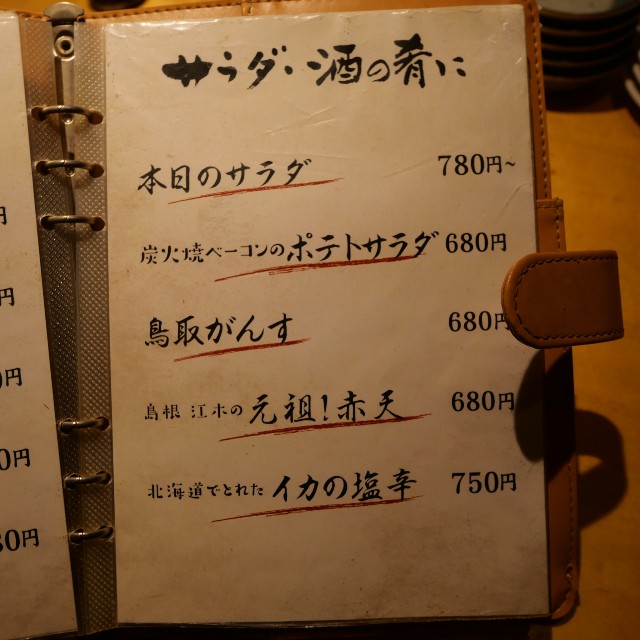 サラダ・酒の肴に
本日のサラダ 780円~
炭火焼ベーコンのポテトサラダ 680円
鳥取がんす 680円
島根 江木の 元祖!赤天 680円
北海道でとれた イカの塩辛 750円
円
円
円
0円
80円